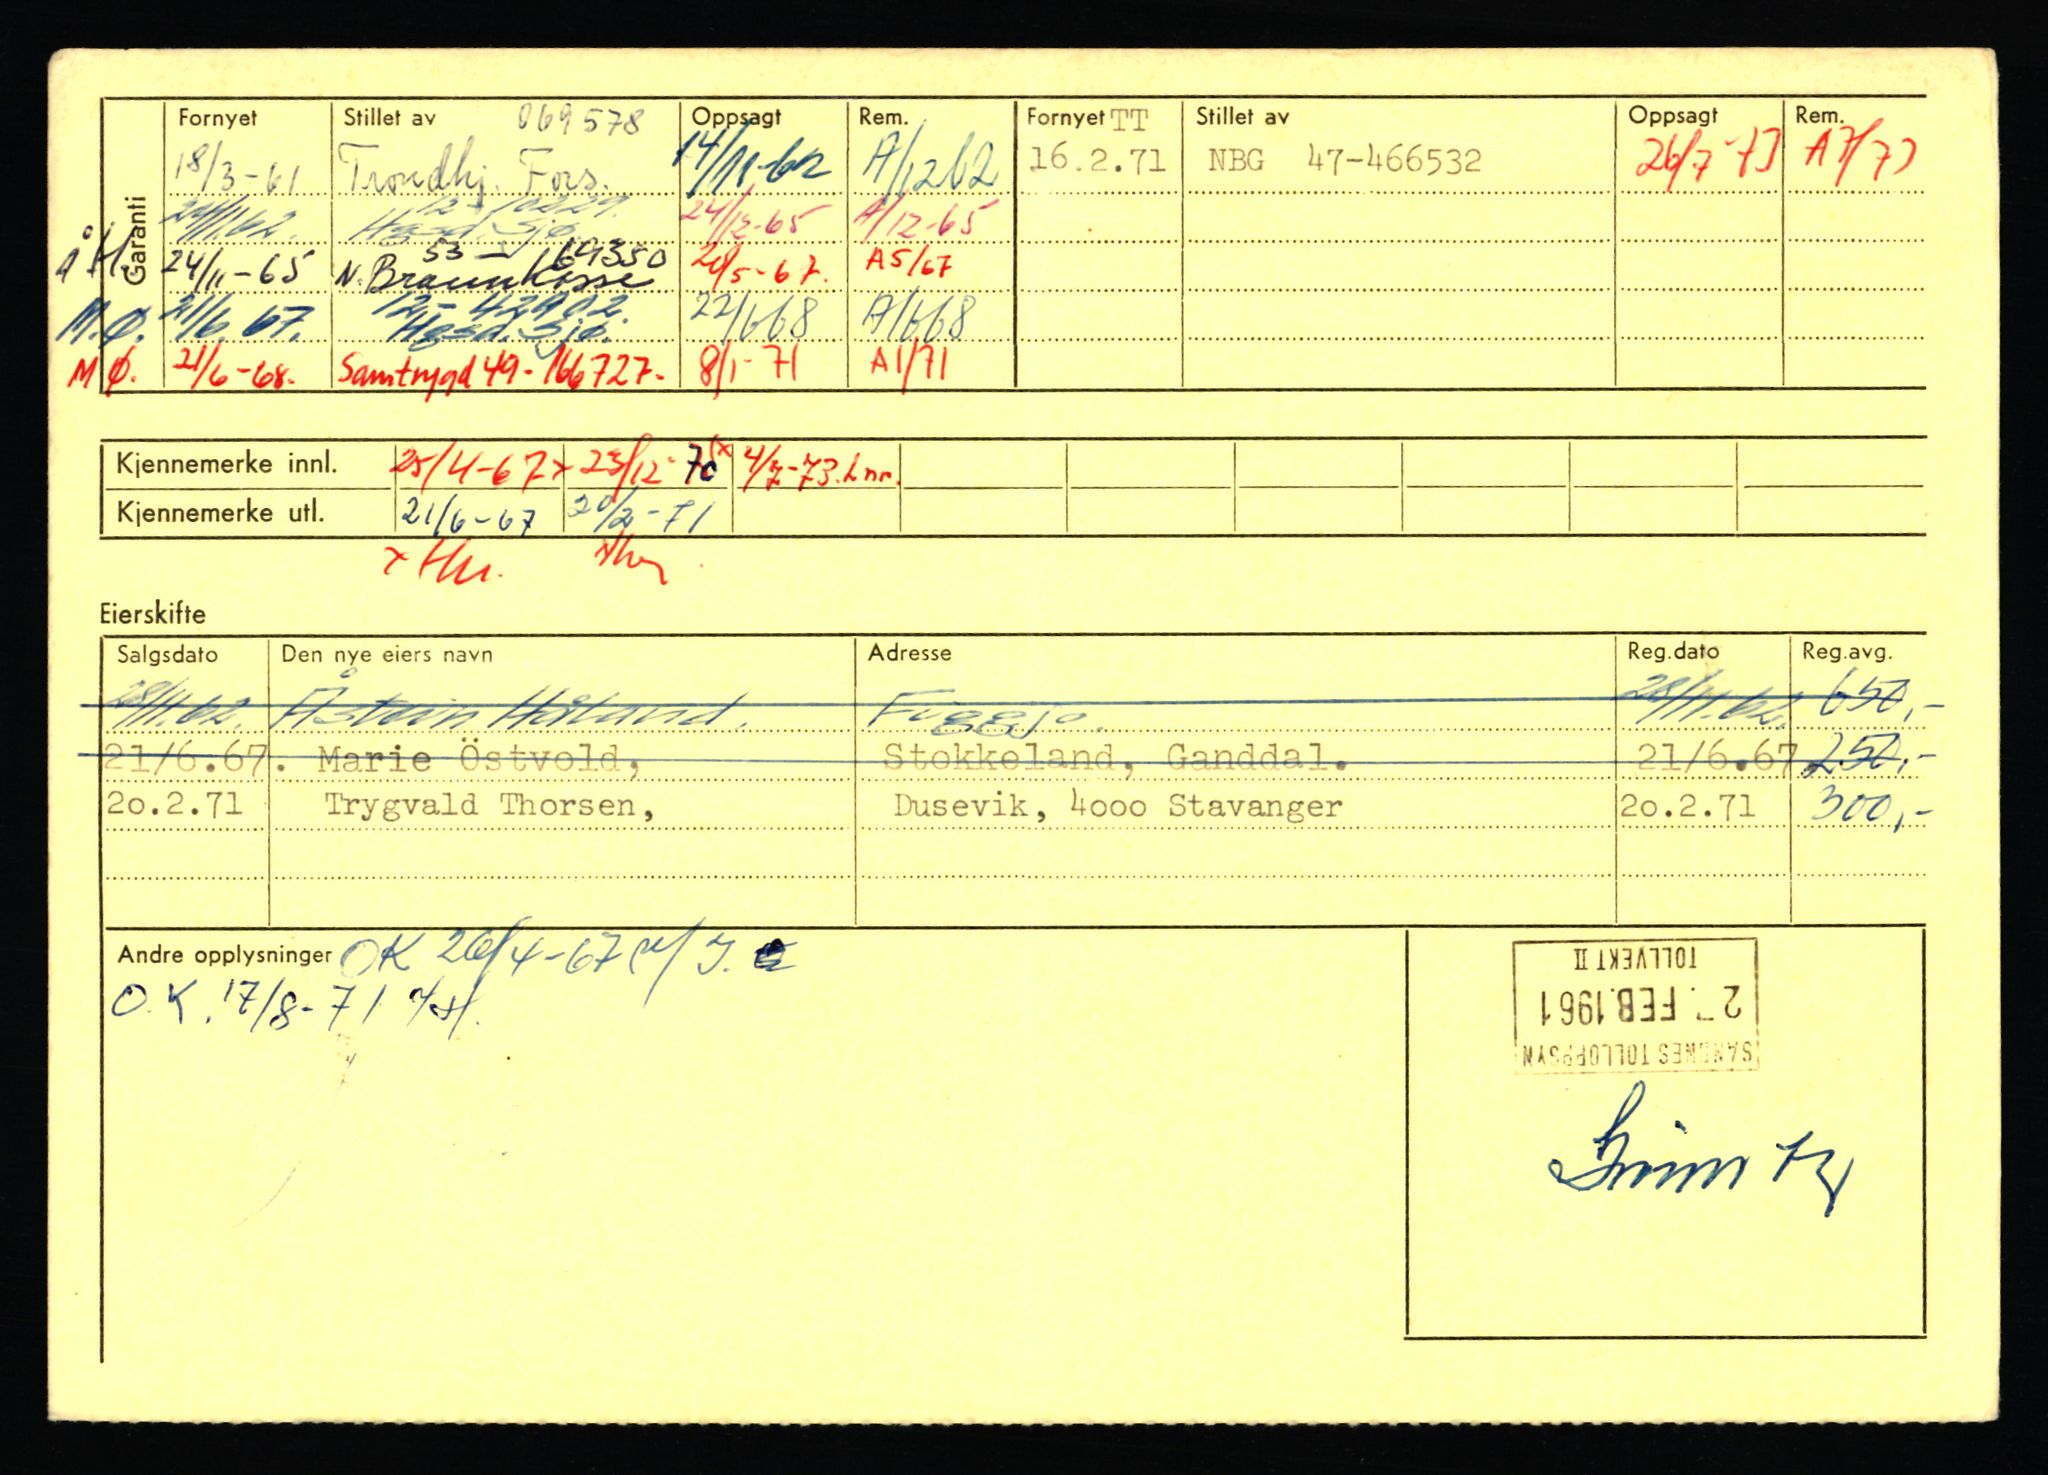 Garanti
Fornyet Stillet av 069578 Oppsagt Rem. Fornyet TT Stillet av Oppsagt Rem.
18/3-61 Trondhj. Fors. 14/11-62 A/1262 16.2.71 NBG 47-466532 26/7-73 A7/73
12-10229.
24/11.62. Hgsd. Sjø. 24/12-65 A/12-65
53-169350
Å H. 24/11-65 N. Braunkasse 20/5-67. A5/67
12-42902.
M.Ø. 21/6.67. Hgsd. Sjø. 22/668 A/668
MØ. 21/6-68. Samtrygd 49-166727- 8/1-71 A1/71
Kjennemerke innl. 25/4-67x 23/12-70x 4/7-73. Lnr.
Kjennemerke utl. 21/6-67 20/2-71
Eierskifte
Salgsdato Den nye eiers navn Adresse Reg.dato Reg.avg.
28/11.62. Åstein Håland. Figgjo. 28/11.62. 650,-
21/6.67. Marie Östvold, Stokkeland, Ganddal. 21/6.67 250,-
2o.2.71 Trygvald Thorsen, Dusevik, 4ooo Stavanger 2o.2.71 300,-
Andre opplysninger OK 26/4-67
O.K. 17/8-71
SANDNES TOLLOPPSYN
27. FEB. 1961
TOLLVEKT II